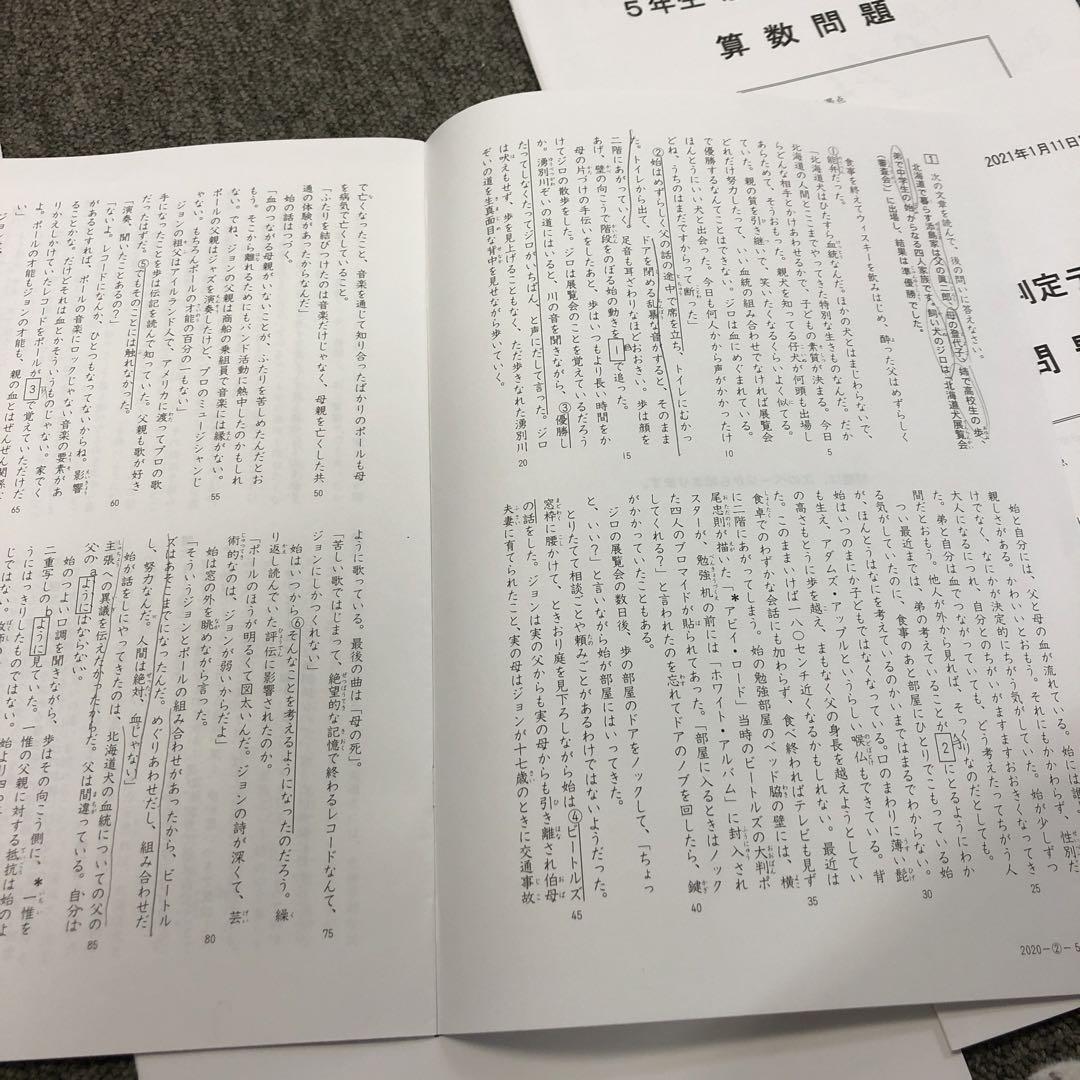 5年生
算数問題
2021年1月11日
判定テ
問
1 次の文章を読んで、後の問いに答えなさい。
北海道で暮らす添島家は父の眞二郎、母の登代子、姉で高校生の歩、
弟で中学生の始からなる四人家族です。飼い犬のジロは「北海道犬展覧会
（審査会）」に出場し、結果は準優勝でした。
食事を終えてウィスキーを飲みはじめ、酔った父はめずらしく
①能弁だった。
「北海道犬はひたすら血統なんだ。ほかの犬とはまじわらないで、
北海道の人間とここまでやってきた特別な生きものなんだ。だか
らどんな相手とかけあわせるかで、子どもの素質が決まる。今日
あらためて、そうおもった。親犬を知ってる仔犬が何頭も出場し
ていた。親の質を引き継いで、笑いたくなるくらいよく似てる。
どれだけ努力したって、いい血統の組み合わせでなければ展覧会
で優勝するなんてことはできない。ジロは血にめぐまれている。
ほんとうにいい犬と出会った。今日も何人かから声がかかったけ
どね、うちのはまだですからって断った」
②始はめずらしく父の話の途中で席を立ち、トイレにむかっ
た。トイレから出て、ドアを閉める乱暴な音がすると、そのまま
二階にあがっていく。足音も耳ざわりなほどおおきい。歩は顔を
あげ、壁の向こうで階段をのぼる始の動きを 1 で追った。
母の片づけの手伝いをしたあと、歩はいつもより長い時間をか
けてジロの散歩をした。ジロは展覧会のことを覚えているだろう
か。湧別川ぞいの道にはいると、川の音を聞きながら、③優勝し
たってしなくたってジロがいちばん、と声にだして言った。ジロ
は吠えもせず、歩を見上げることもなく、ただ歩きなれた湧別川
ぞいの道を生真面目な背中を見せながら歩いていく。
5
10
15
20
始と自分には、父と母の血が流れている。始には誰
親しさがある。かわいいとおもう。それにもかかわらず、性別だ
けでなく、なにかが決定的にちがう気がしていた。始が少しずつ
大人になるにつれ、自分とのちがいがますますおおきくなってき
た。弟と自分は血でつながっていても、どう考えたってちがう人
間だとおもう。他人が外から見れば、そっくりなのだとしても。
つい最近までは、弟の考えていることが 2 にとるようにわか
る気がしていたのに、食事のあと部屋にひとりでこもっている弟
が、ほんとうはなにを考えているのか、いまではまるでわからない。
始はいつのまにか子どもではなくなっている。口のまわりに薄い髭
も生え、アダムズ・アップルというらしい喉仏もできている。背
の高さもとうに歩を越え、まもなく父の身長を越えようとしてい
た。このままいけば一八〇センチ近くなるかもしれない。最近は
食卓でのわずかな会話にも加わらず、食べ終わればテレビも見ず
に二階にあがってしまう。始の勉強部屋のベッド脇の壁には、横
尾忠則が描いた「＊アビイ・ロード」当時のビートルズの大判ポ
スターが、勉強机の前には「ホワイト・アルバム」に封入され
た四人のブロマイドが貼られてあった。「部屋に入るときはノック
してくれる？」と言われたのを忘れてドアのノブを回したら、鍵
がかかっていたこともある。
ジロの展覧会の数日後、歩の部屋のドアをノックして、「ちょっ
と、いい？」と言いながら始が部屋にはいってきた。
とりたてて相談ごとや頼みごとがあるわけではないようだった。
窓枠に腰かけて、ときおり庭を見下ろしながら始は④ビートルズ
の話をした。ジョンは実の父からも実の母からも引き離され伯母
夫妻に育てられたこと、実の母はジョンが十七歳のときに交通事故
25
30
35
40
45
2020－②－5
で亡くなったこと、音楽を通じて知り合ったばかりのポールも母
を病気で亡くしていること。
「ふたりを結びつけたのは音楽だけじゃなく、母親を亡くした共
通の体験があったからなんだ」
始の話はつづく。
「血のつながる母親がいないことが、ふたりを苦しめたんだとお
もう。そこから離れるためにもバンド活動に熱中したのかもしれ
ない。でね、ジョンの父親は商船の乗組員で音楽には縁がない。
ポールの父親はジャズを演奏したけど、プロのミュージシャンじ
ゃない。もちろんポールの才能の百分の一もない」
ジョンの祖父はアイルランド人で、アメリカに渡ってプロの歌
手になったことを歩は伝記を読んで知っていた。父親も歌が好き
だったはずだ。⑤でもそのことには触れなかった。
「演奏、聞いたことあるの？」
「ないよ。レコードになんか、ひとつもなってないからね。影響
があるとすれば、ポールの音楽にロックじゃない音楽の要素があ
ることかな。だけどそれは血とかそういうものじゃない。家でく
りかえしかけていたレコードをポールが 3 で覚えていただけだ
よ。ポールの才能もジョンの才能も、親の血とはぜんぜん関係な
い」
50
55
60
65
ように歌っている。最後の曲は「母の死」。
「苦しい歌ではじまって、絶望的な記憶で終わるレコードなんて、
ジョンにしかつくれない」
始はいつから⑥そんなことを考えるようになったのだろう。繰
り返し読んでいた評伝に影響されたのか。
「ポールのほうが明るくて図太いんだ。ジョンの詩が深くて、芸
術的なのは、ジョンが弱いからだよ」
始は窓の外を眺めながら言った。
「そういうジョンとポールの組み合わせがあったから、ビートル
ズはあそこまでになったんだ。めぐりあわせだし、組み合わせだ
し、努力なんだ。人間は絶対、血じゃない」
始が話をしにやってきたのは、北海道犬の血統についての父の
主張への異議を伝えたかったからだ。父は間違っている。自分は
父のaようにはならない。
始のつよい口調を聞きながら、歩はその向こう側に、＊一惟を
二重写しのbように見ていた。一惟の父親に対する抵抗は始のよ
うにはっきりしたものではない。
75
80
85